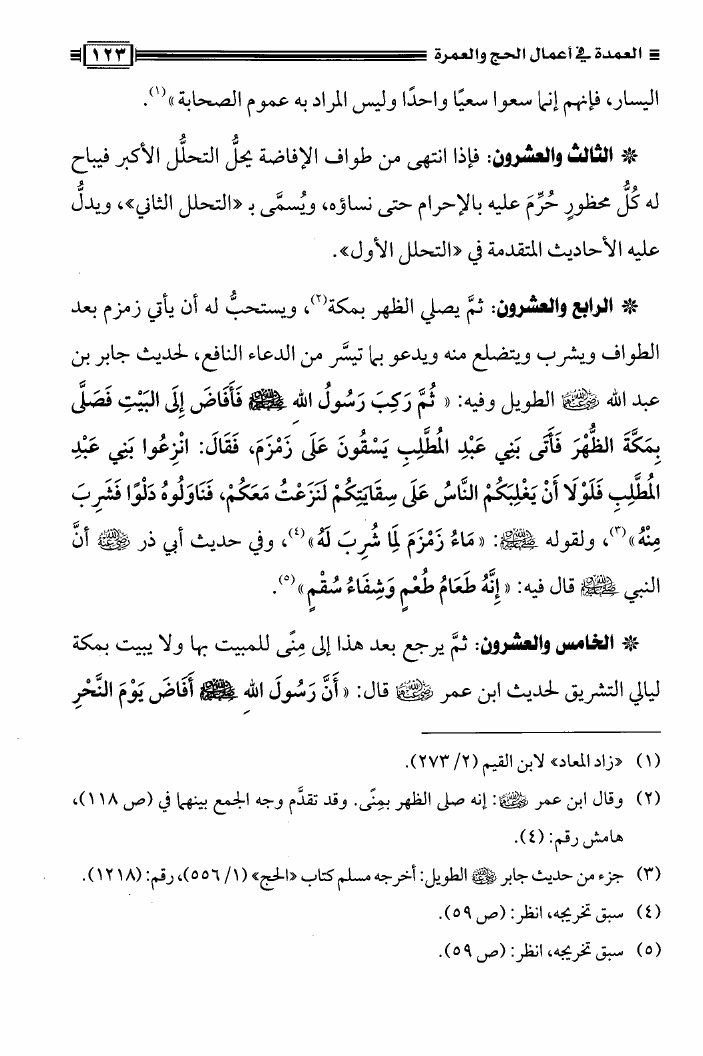 العمدة في أعمال الحج والعمرة ١٢٣
اليسار، فإنهم إنما سعوا سعيًا واحدًا وليس المراد به عموم الصحابة»(١).
* الثالث والعشرون: فإذا انتهى من طواف الإفاضة يحلُّ التحلُّل الأكبر فيباح
له كُلُّ محظورٍ حُرِّمَ عليه بالإحرام حتى نساؤه، ويُسمَّى بـ «التحلل الثاني»، ويدلُّ
عليه الأحاديث المتقدمة في «التحلل الأول».
* الرابع والعشرون: ثمَّ يصلي الظهر بمكة(٢)، ويستحبُّ له أن يأتي زمزم بعد
الطواف ويشرب ويتضلع منه ويدعو بما تيسَّر من الدعاء النافع، لحديث جابر بن
عبد الله رضي الله عنه الطويل وفيه: «ثُمَّ رَكِبَ رَسُولُ اللهِ ﷺ فَأَفَاضَ إِلَى البَيْتِ فَصَلَّى
بِمَكَّةَ الظُّهْرَ فَأَتَى بَنِي عَبْدِ المُطَّلِبِ يَسْقُونَ عَلَى زَمْزَمَ، فَقَالَ: انْزِعُوا بَنِي عَبْدِ
المُطَّلِبِ فَلَوْلَا أَنْ يَغْلِبَكُمْ النَّاسُ عَلَى سِقَايَتِكُمْ لَنَزَعْتُ مَعَكُمْ، فَنَاوَلُوهُ دَلْوًا فَشَرِبَ
مِنْهُ»(٣)، ولقوله ﷺ: «مَاءُ زَمْزَمَ لِمَا شُرِبَ لَهُ»(٤)، وفي حديث أبي ذر رضي الله عنه أنَّ
النبي ﷺ قال فيه: «إِنَّهُ طَعَامُ طُعْمٍ وَشِفَاءُ سُقْمٍ»(٥).
* الخامس والعشرون: ثمَّ يرجع بعد هذا إلى مِنًى للمبيت بها ولا يبيت بمكة
ليالي التشريق لحديث ابن عمر رضي الله عنهما قال: «أَنَّ رَسُولَ اللهِ ﷺ أَفَاضَ يَوْمَ النَّحْرِ
(١) «زاد المعاد» لابن القيم (٢/ ٢٧٣).
(٢) وقال ابن عمر رضي الله عنهما: إنه صلى الظهر بمِنًى. وقد تقدَّم وجه الجمع بينهما في (ص ١١٨)،
هامش رقم: (٤).
(٣) جزء من حديث جابر رضي الله عنه الطويل: أخرجه مسلم كتاب «الحج» (١/ ٥٥٦)، رقم: (١٢١٨).
(٤) سبق تخريجه، انظر: (ص ٥٩).
(٥) سبق تخريجه، انظر: (ص ٥٩).